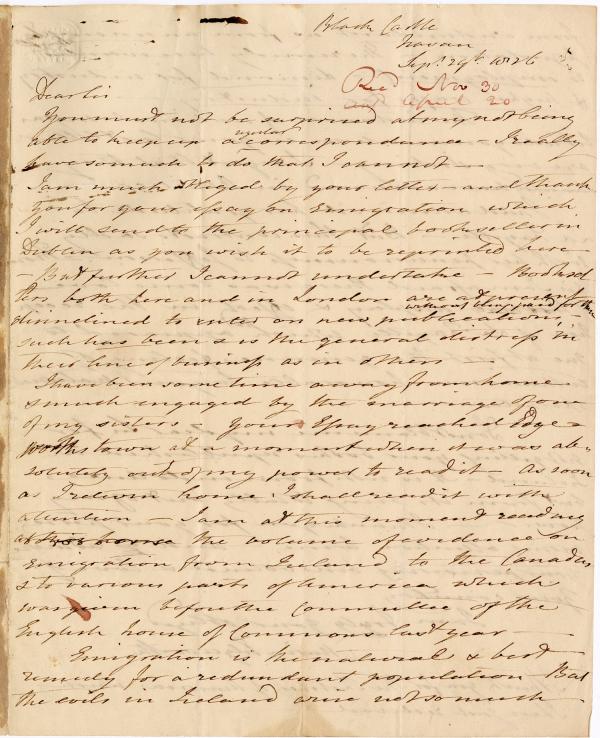 Black Castle
Navan
Sepr. 29th. 1826
Recd Nov 30
ansd April 20
Dear Sir
You must not be surprised at my not being
able to keep up a regular correspondence – I really
have so much to do that I cannot –
I am much obliged by your letter – and thank
you for your Essay on Emigration which
I will send to the principal bookseller in
Dublin as you wish it to be reprinted here –
– But further I cannot undertake – Booksel
lers both here and in London are at present
disinclined to enter on new publications without being paid for them
such has been & is the general distress in
their line of business as in others –
I have been some time away from home
& much engaged by the marriage of one
of my sisters – Your Essay reached Edge=
worths town at a moment when it was ab-
solutely out of my power to read it – As soon
as I return home I shall read it with
attention – I am at this moment reading
at this house the volume of evidence on
Emigration from Ireland to the Canadas
& to various parts of America which
was given before the Committee of the
English house of Commons last year –
Emigration is the natural & best
remedy for a redundant population – But
the evils in Ireland arise not so much